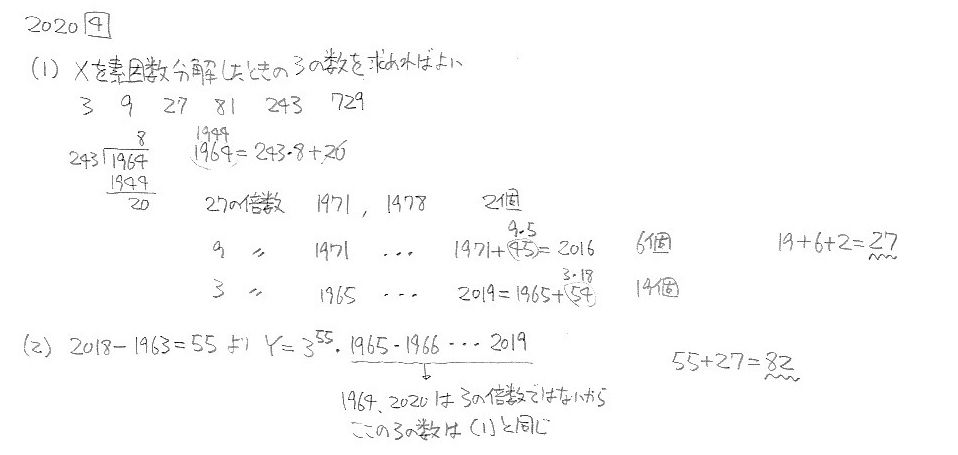 2020 4
(1) Xを素因数分解したときの3の数を求めればよい
3 9 27 81 243 729
8
243)1964
1944
20
1944
1964=243・8+20
27の倍数 1971, 1978 2個
9・5
9 〃 1971 ・・・ 1971+45=2016 6個 19+6+2=27
3・18
3 〃 1965 ・・・ 2019=1965+54 19個
(2) 2018-1963=55より Y=3^55・1965・1966・・・2019 55+27=82
1964、2020は3の倍数ではないから
ここの3の数は(1)と同じ